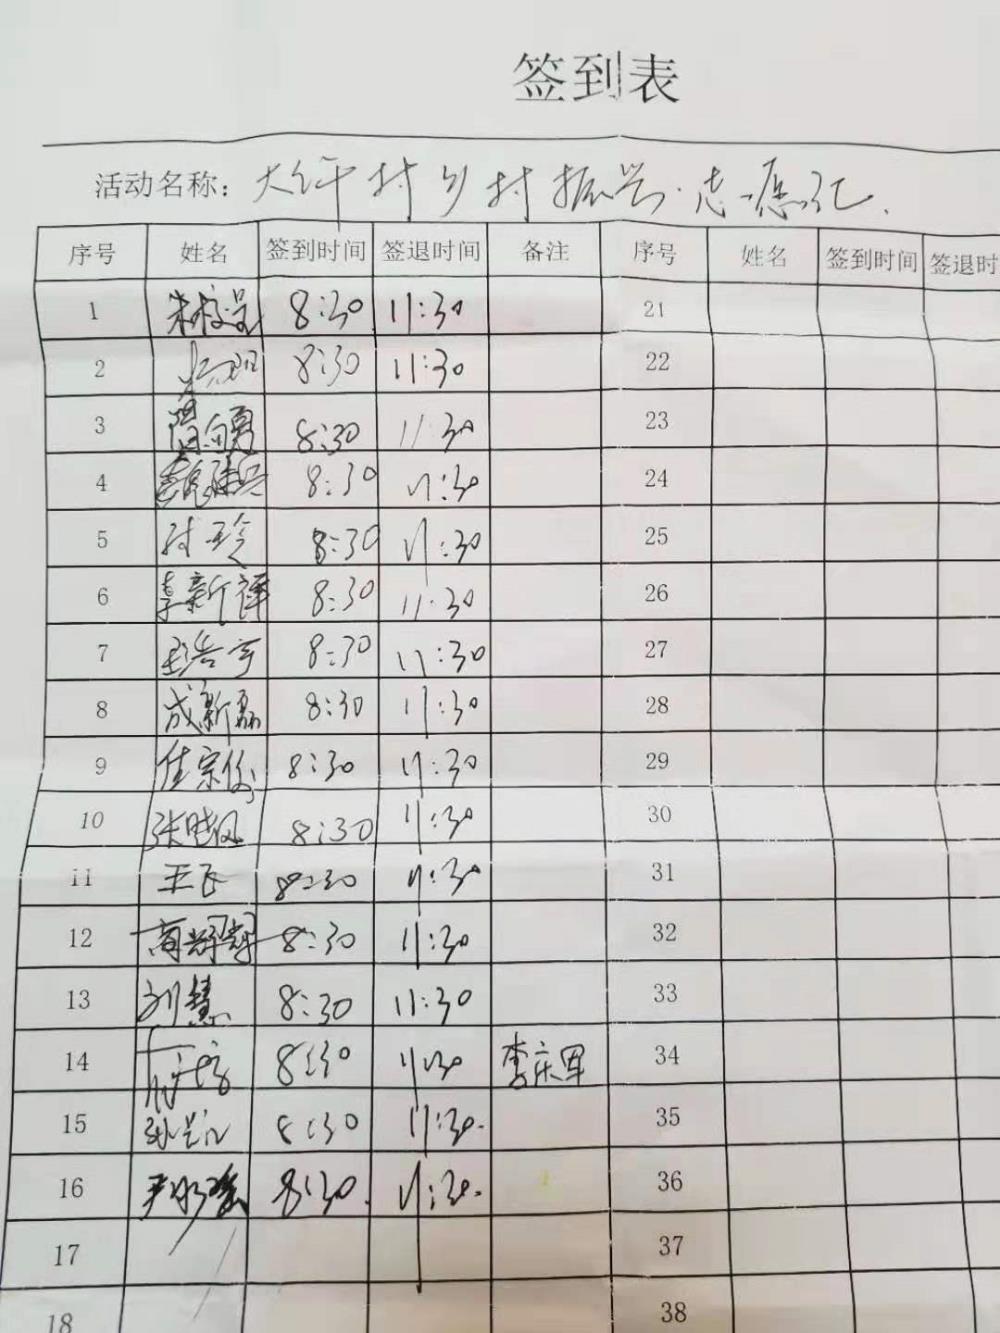 签到表
活动名称：大坪村乡村振兴·志愿汇.
序号 姓名 签到时间 签退时间 备注 序号 姓名 签到时间 签退时
1 8:30 11:30 21
2 8:30 11:30 22
3 8:30 11:30 23
4 8:30 11:30 24
5 付玲 8:30 11:30 25
6 李新译 8:30 11:30 26
7 王浩宇 8:30 11:30 27
8 成新磊 8:30 11:30 28
9 8:30 11:30 29
10 张晓 8:30 11:30 30
11 王飞 8:30 11:30 31
12 8:30 11:30 32
13 刘慧 8:30 11:30 33
14 8:30 11:30 李庆军 34
15 8:30 11:30. 35
16 8:30. 11:30. 36
17 37
18 38